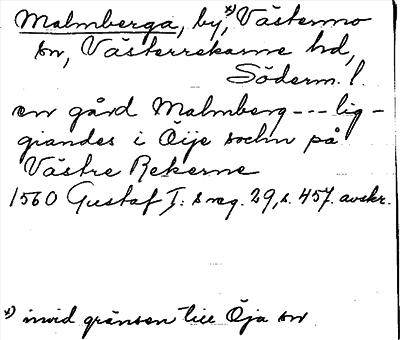 Malmberga, by,*) Västermo
sn, Västerrekarne hd,
Söderm. l.
en gård Malmberg --- lig-
giandes i Öije sochn på
Västre Rekerne
1560 Gustaf I:s reg. 29, s. 457. avskr.
*) invid gränsen till Öja sn